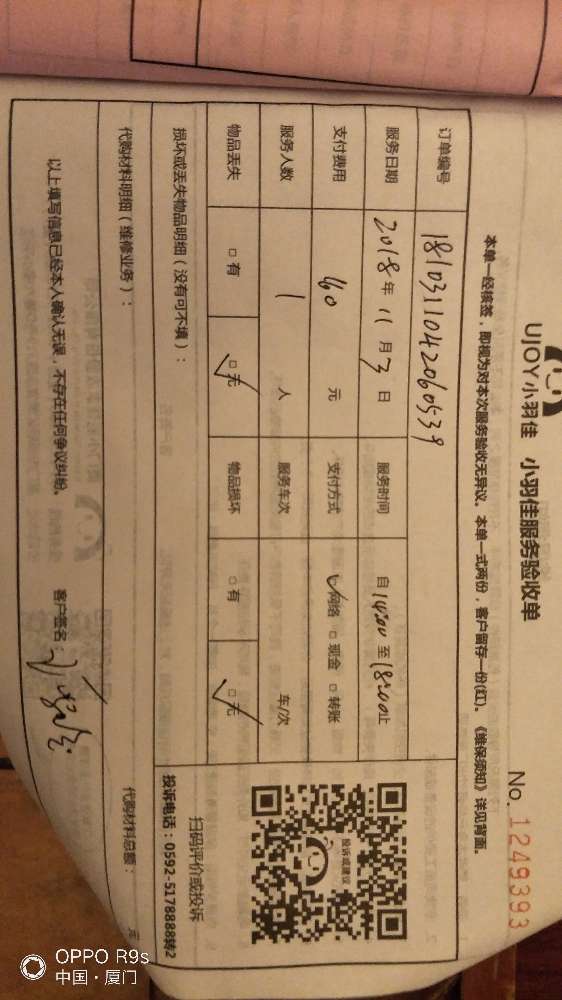 UJOY小羽佳 小羽佳服务验收单
No. 1249393
本单一经核签，即视为对本次服务验收无异议。本单一式两份，客户留存一份(红)。《维保须知》详见背面。
订单编号 1810311042060539
服务日期 2018年 11月 3日 服务时间 自 14:00 至 18:00止
支付费用 元 支付方式 ☑网络 □现金 □转账
服务人数 1 人 服务车次 车/次
物品丢失 □有 ☑无 物品损坏 □有 ☑无
损坏或丢失物品明细（没有可不填）：
代购材料明细（维修业务）：
代购材料总额： 元
投诉或建议
扫码评价或投诉
投诉电话：0592-5178888转2
以上填写信息已经本人确认无误，不存在任何争议纠纷。 客户签名：
OPPO R9s
中国·厦门